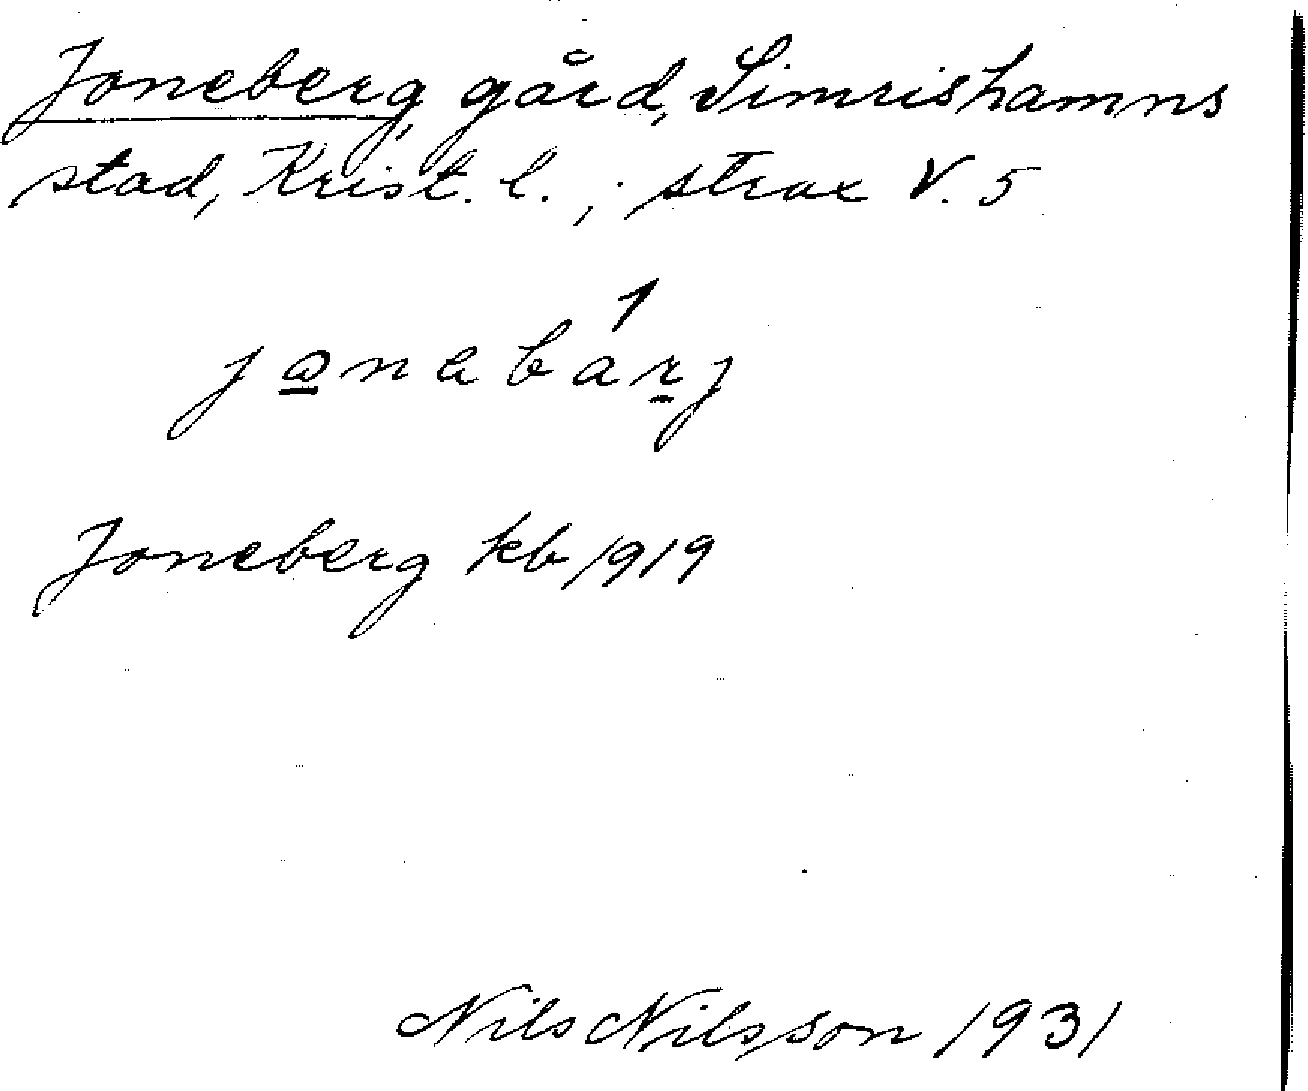 Joneberg, gård, Simrishamns
stad, Krist. l., ; strax V. 5
Joneberg kb 1919
Nils Nilsson 1931